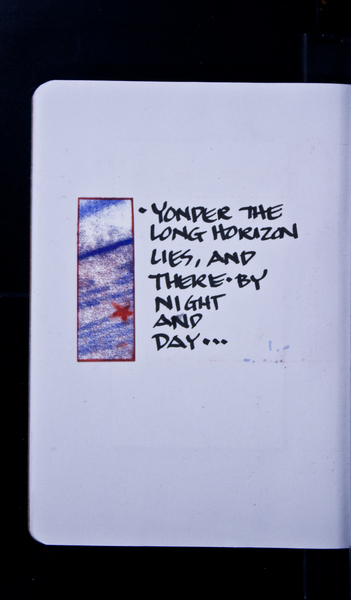 • YONDER THE
LONG HORIZON
LIES, AND
THERE•BY
NIGHT
AND
DAY•••